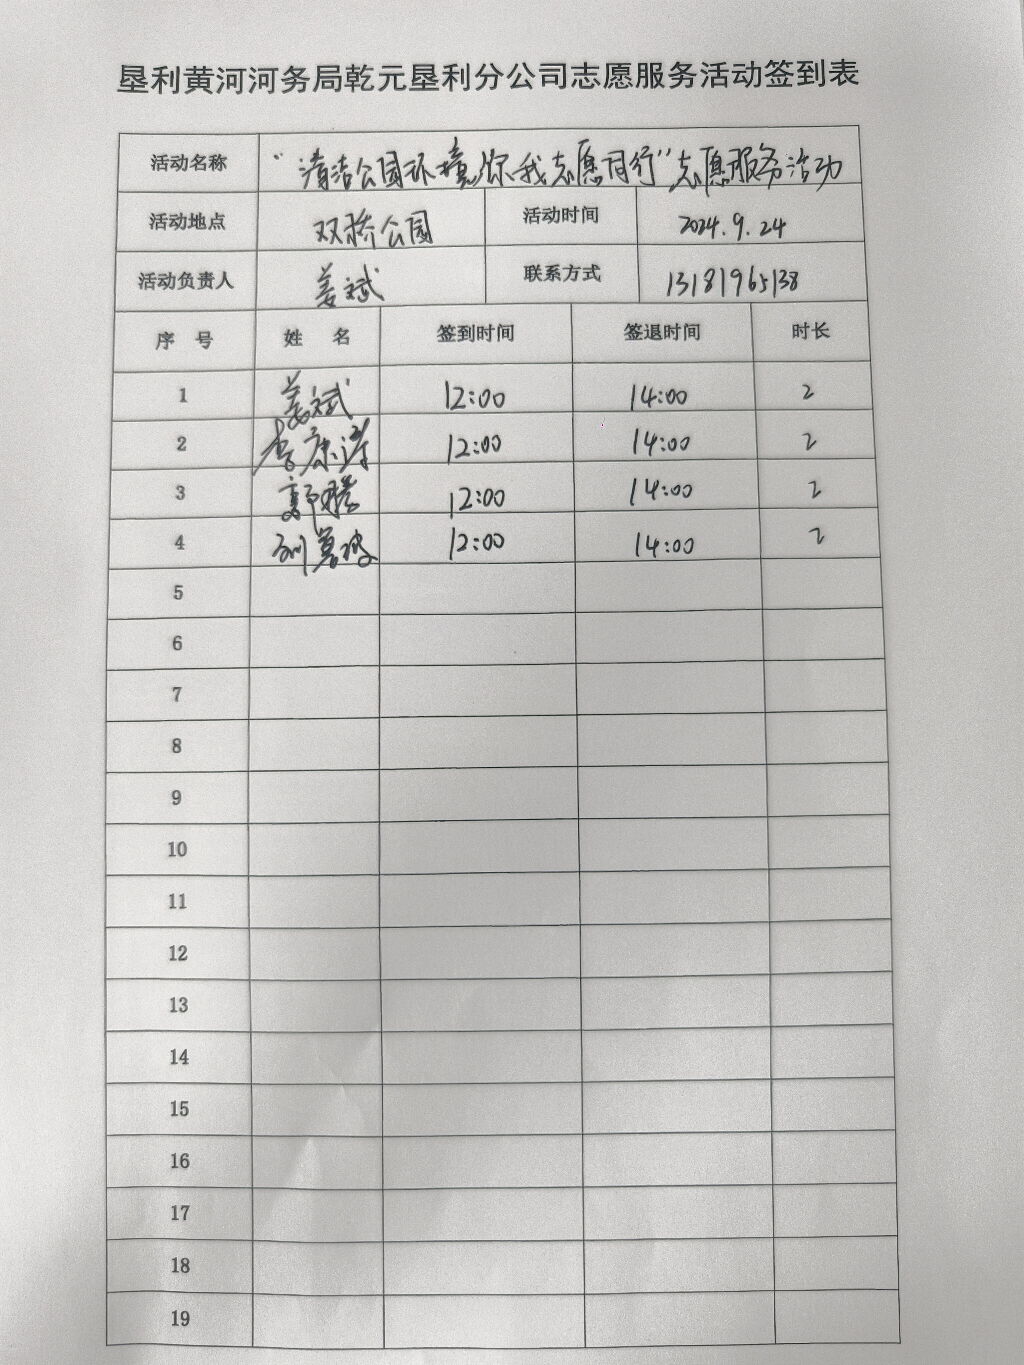 垦利黄河河务局乾元垦利分公司志愿服务活动签到表
活动名称 “清洁公园环境 你我志愿同行”志愿服务活动
活动地点 双桥公园 活动时间 2024.9.24
活动负责人 姜斌 联系方式 13181965138
序号 姓名 签到时间 签退时间 时长
1 姜斌 12:00 14:00 2
2 李康涛 12:00 14:00 2
3 郭腾 12:00 14:00 2
4 12:00 14:00 2
5
6
7
8
9
10
11
12
13
14
15
16
17
18
19